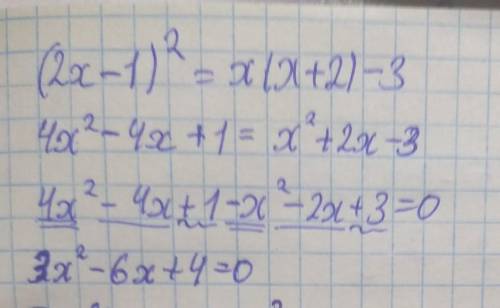 (2x-1)² = x(x+2)-3
4x²-4x+1= x²+2x-3
4x²-4x+1-x²-2x+3=0
3x²-6x+4=0